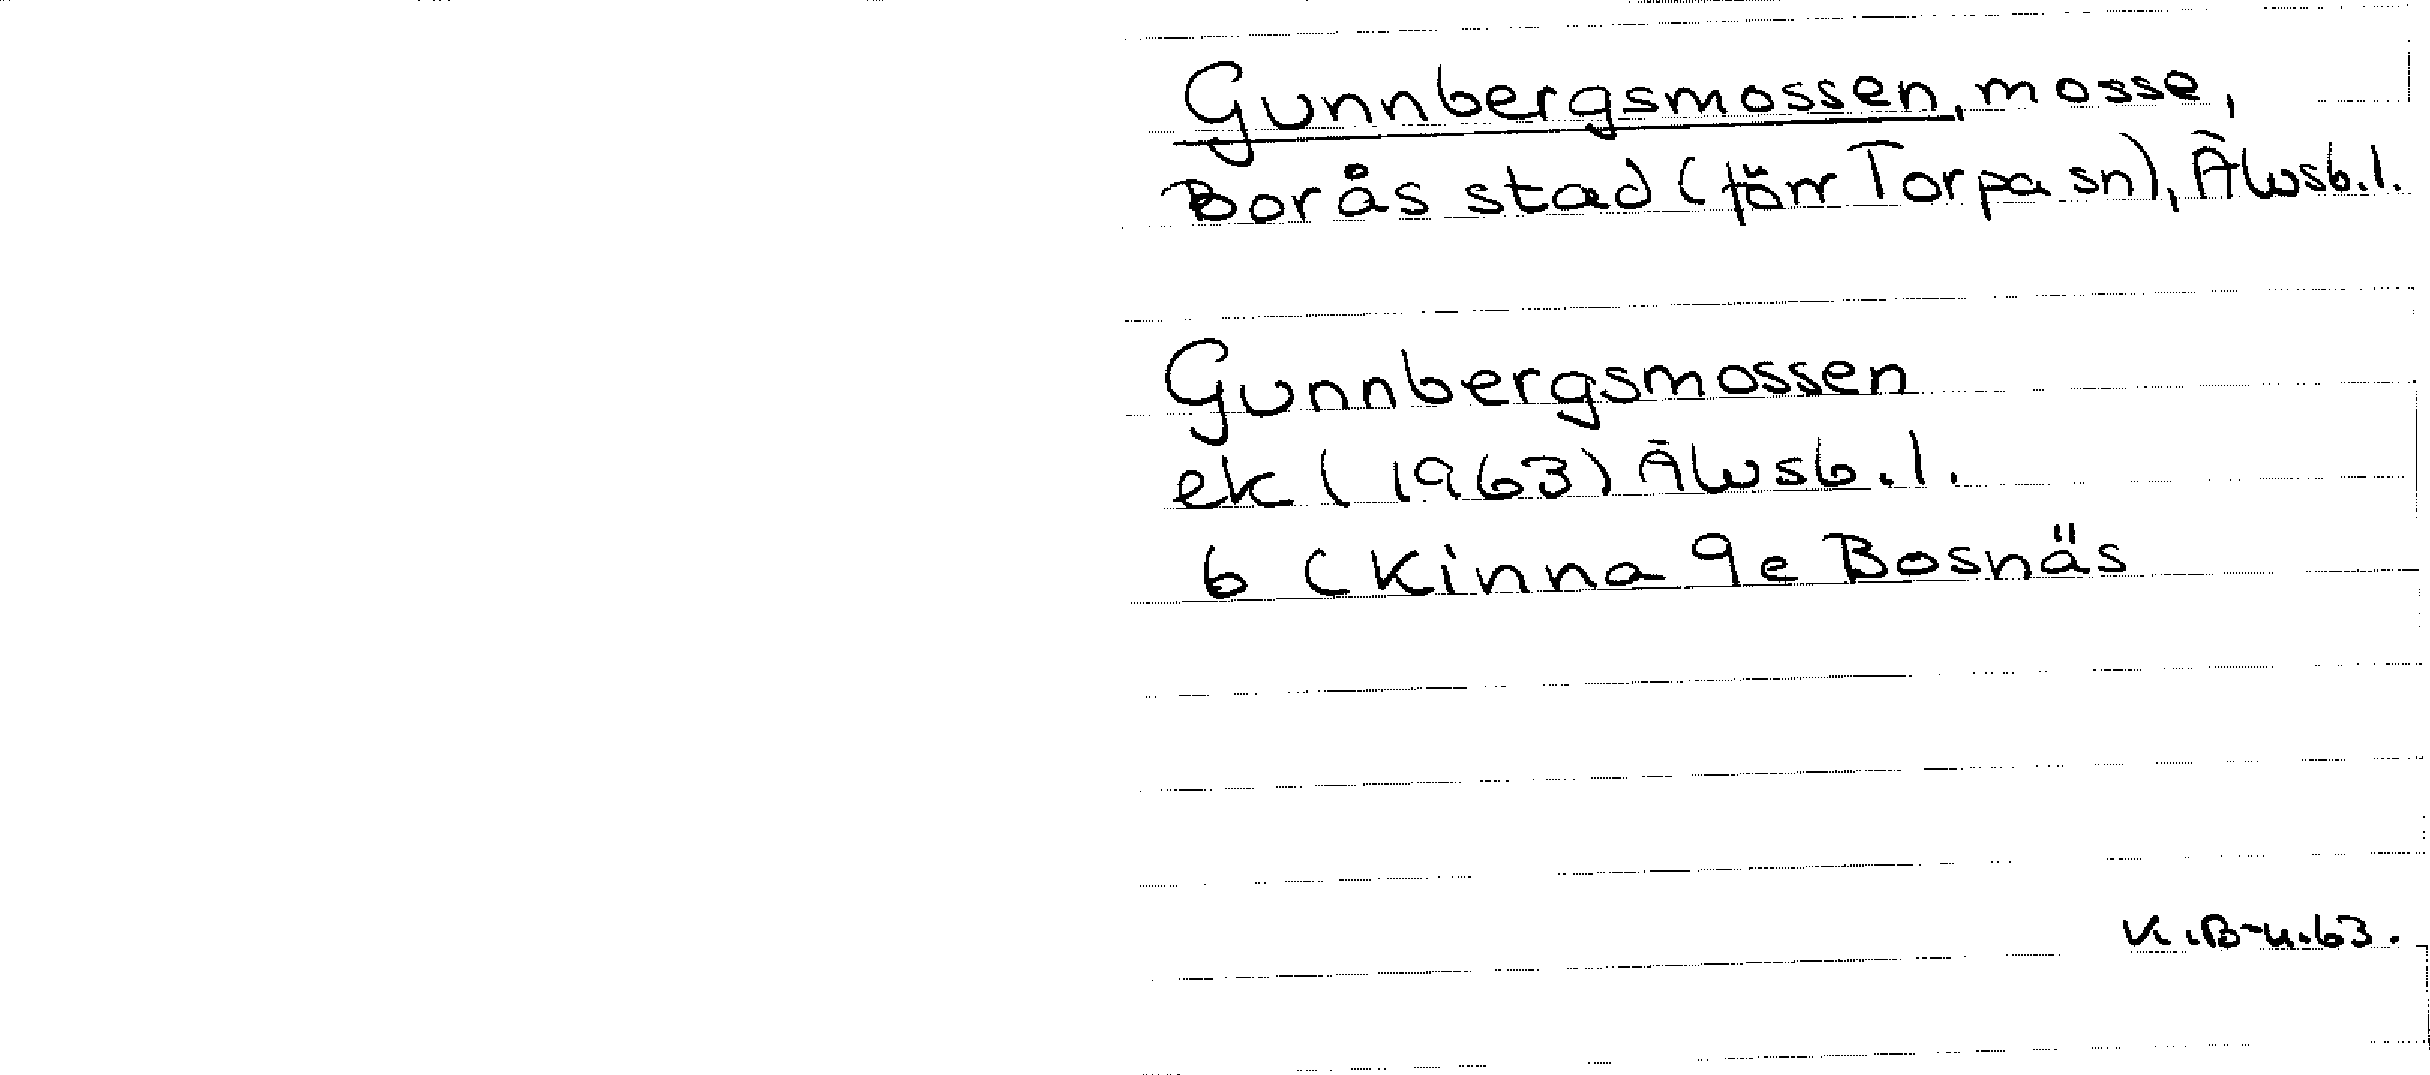 Gunnbergsmossen, mosse,
Borås stad (förr Torpa sn), Älvsb.l.
Gunnbergsmossen
ek (1963) Älvsb.l.
6 C Kinna 9e Bosnäs
K.B-u.63.